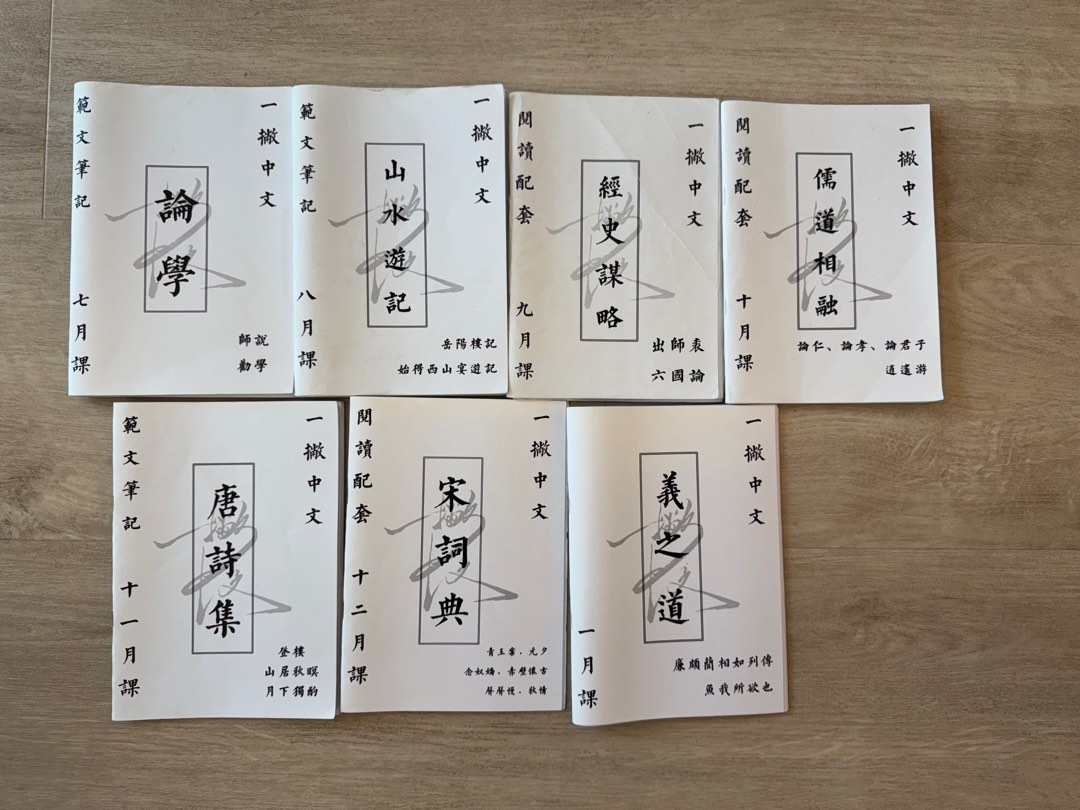 一撇中文
論學
師說
勸學
範文筆記 七月課
一撇中文
山水遊記
岳陽樓記
始得西山宴遊記
範文筆記 八月課
一撇中文
經史謀略
出師表
六國論
閱讀配套 九月課
一撇中文
儒道相融
論仁、論孝、論君子
逍遙游
閱讀配套 十月課
一撇中文
唐詩集
登樓
山居秋暝
月下獨酌
範文筆記 十一月課
一撇中文
宋詞典
青玉案．元夕
念奴嬌．赤壁懷古
聲聲慢．秋情
閱讀配套 十二月課
一撇中文
義之道
廉頗藺相如列傳
魚我所欲也
一月課